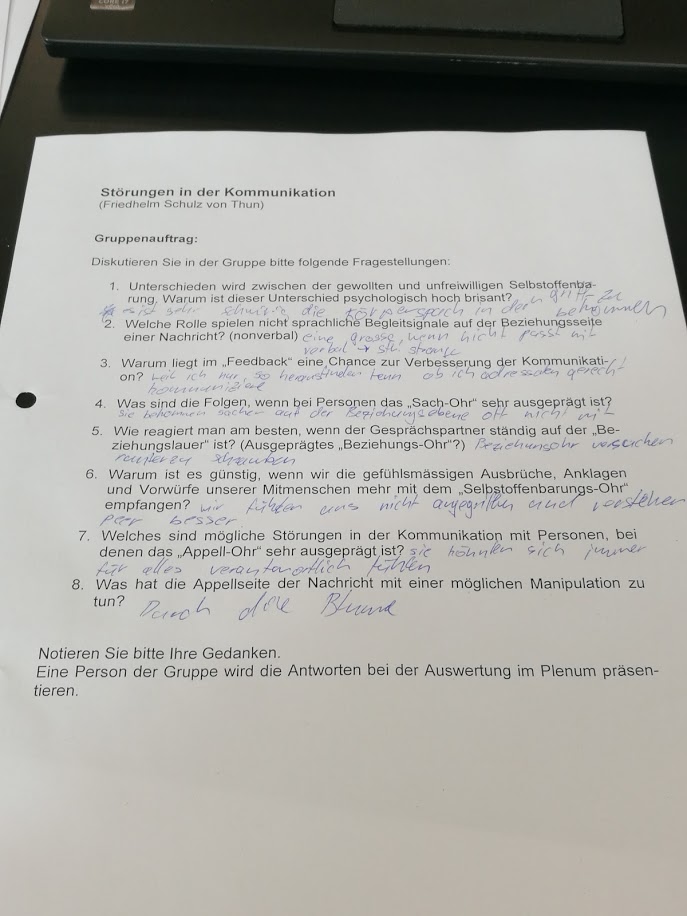 CORE i7
Störungen in der Kommunikation
(Friedhelm Schulz von Thun)
Gruppenauftrag:
Diskutieren Sie in der Gruppe bitte folgende Fragestellungen:
1. Unterschieden wird zwischen der gewollten und unfreiwilligen Selbstoffenba-
rung. Warum ist dieser Unterschied psychologisch hoch brisant?
es ist sehr schwierig die Körpersprach in den griff zu bekommen
2. Welche Rolle spielen nicht sprachliche Begleitsignale auf der Beziehungsseite
einer Nachricht? (nonverbal) eine grosse, wenn nicht passt mit
verbal →
3. Warum liegt im „Feedback" eine Chance zur Verbesserung der Kommunikati-
on? weil ich nur so herausfinden kenn ob ich adressaten gerecht
kommuniziere
4. Was sind die Folgen, wenn bei Personen das „Sach-Ohr" sehr ausgeprägt ist?
Sie bekommen sachen auf der Beziehungsebene oft nicht mit
5. Wie reagiert man am besten, wenn der Gesprächspartner ständig auf der „Be-
ziehungslauer" ist? (Ausgeprägtes „Beziehungs-Ohr"?) Beziehungsohr versuchen
schrauben
6. Warum ist es günstig, wenn wir die gefühlsmässigen Ausbrüche, Anklagen
und Vorwürfe unserer Mitmenschen mehr mit dem „Selbstoffenbarungs-Ohr"
empfangen? wir fühlen uns nicht angegriffen und verstehen
besser
7. Welches sind mögliche Störungen in der Kommunikation mit Personen, bei
denen das „Appell-Ohr" sehr ausgeprägt ist? sie könnten sich immer
für alles verantwortlich fühlen
8. Was hat die Appellseite der Nachricht mit einer möglichen Manipulation zu
tun? Durch die Blume
Notieren Sie bitte Ihre Gedanken.
Eine Person der Gruppe wird die Antworten bei der Auswertung im Plenum präsen-
tieren.